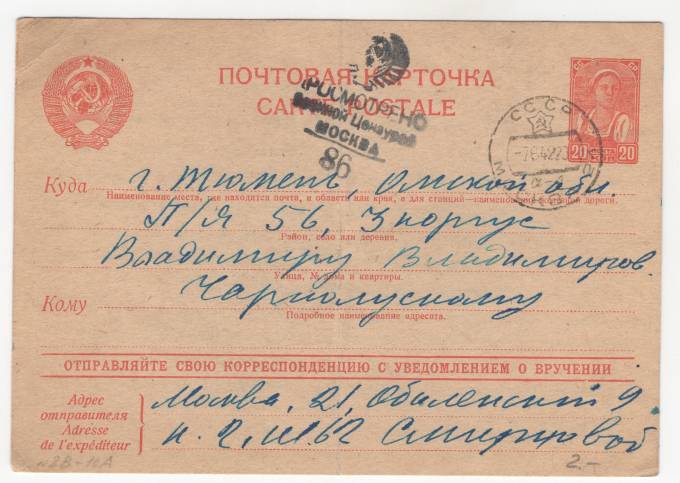 ПОЧТОВАЯ КАРТОЧКА
CARTE POSTALE
ПРОСМОТРЕНО
Военной Цензурой
МОСКВА
86
СССР
20 20
Куда г. Тюмень, Омской обл.
Наименование места, где находится почта, и области или края, а для станций—наименование железной дороги.
П/Я 56, 3 корпус
Район, село или деревня.
Владимиру Владимиров.
Улица, № дома и квартиры.
Кому Чарнолускому
Подробное наименование адресата.
ОТПРАВЛЯЙТЕ СВОЮ КОРРЕСПОНДЕНЦИЮ С УВЕДОМЛЕНИЕМ О ВРУЧЕНИИ
Адрес
отправителя
Adresse
de l'expéditeur
Москва, 21, Оболенский 9
к. 2, Смирновой
2.-